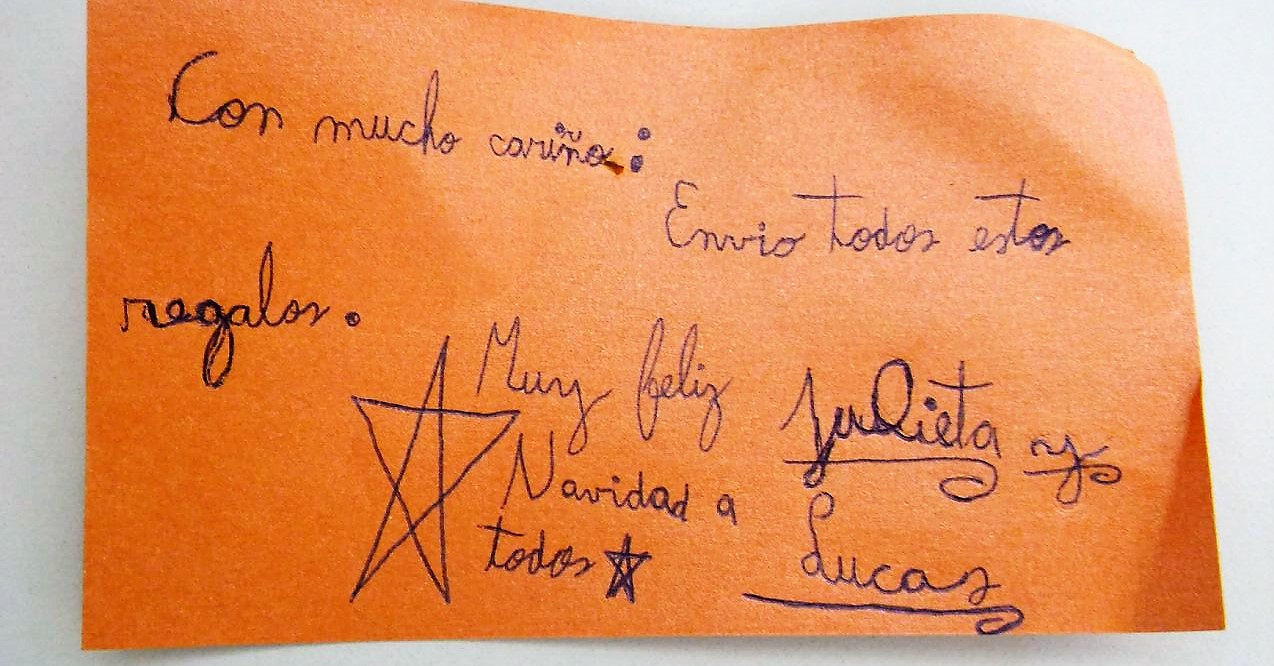 Con mucho cariño:
Envio todos estos
regalos.
Muy feliz
Navidad a
todos
Julieta y
Lucas